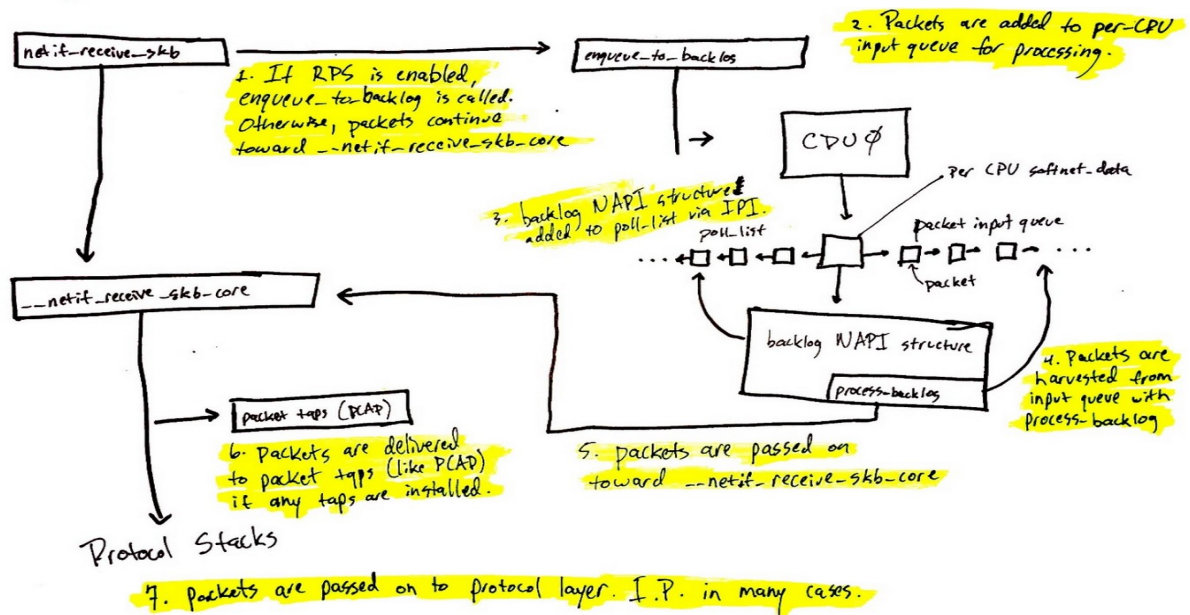 netif_receive_skb
1. If RPS is enabled,
enqueue_to_backlog is called.
Otherwise, packets continue
toward __netif_receive_skb_core
enqueue_to_backlog
2. Packets are added to per-CPU
input queue for processing.
CPU 0
per CPU softnet_data
3. backlog NAPI structure
added to poll_list via IPI.
poll_list
packet input queue
...
...
packet
backlog NAPI structure
process_backlog
4. Packets are
harvested from
input queue with
process_backlog
__netif_receive_skb_core
5. packets are passed on
toward __netif_receive_skb_core
packet taps (PCAP)
6. packets are delivered
to packet taps (like PCAP)
if any taps are installed.
Protocol Stacks
7. packets are passed on to protocol layer. I.P. in many cases.